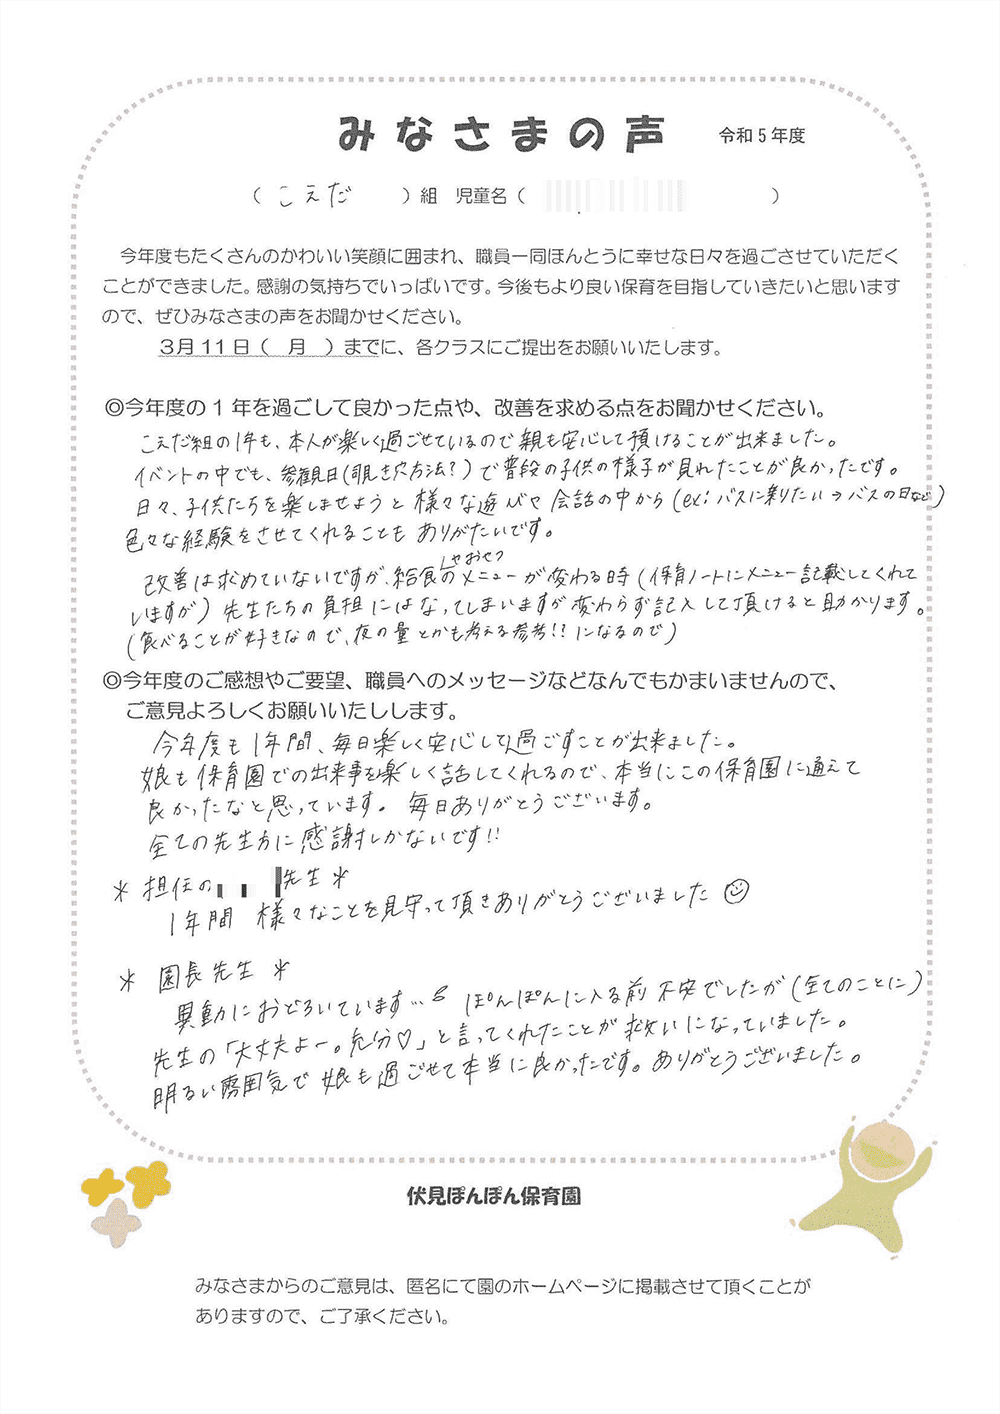 みなさまの声　令和５年度
（こえだ　）組　児童名（　）
今年度もたくさんのかわいい笑顔に囲まれ、職員一同ほんとうに幸せな日々を過ごさせていただく
ことができました。感謝の気持ちでいっぱいです。今後もより良い保育を目指していきたいと思います
ので、ぜひみなさまの声をお聞かせください。
３月１１日（　月　）までに、各クラスにご提出をお願いいたします。
◎今年度の１年を過ごして良かった点や、改善を求める点をお聞かせください。
こえだ組の1年も、本人が楽しく過ごせているので親も安心して預けることが出来ました。
イベントの中でも、参観日(覗き穴方法?)で普段の子供の様子が見れたことが良かったです。
日々、子供たちを楽しませようと様々な遊びや会話の中から(ex:バスに乗りたい→バスの日など)
色々な経験をさせてくれることもありがたいです。
やおやつ
改善は求めていないですが、給食のメニューが変わる時(保育ノートにメニュー記載してくれて
いますが)先生たちの負担にはなってしまいますが変わらず記入して頂けると助かります。
(食べることが好きなので、夜の量とかも考える参考!!になるので)
◎今年度のご感想やご要望、職員へのメッセージなどなんでもかまいませんので、
ご意見よろしくお願いいたしします。
今年度も1年間、毎日楽しく安心して過ごすことが出来ました。
娘も保育園での出来事を楽しく話してくれるので、本当にこの保育園に通えて
良かったなと思っています。毎日ありがとうございます。
全ての先生方に感謝しかないです!!
＊担任の　先生＊
1年間　様々なことを見守って頂きありがとうございました☺
＊園長先生＊
異動におどろいています…　ぽんぽんに入る前不安でしたが(全てのことに)
先生の「大丈夫よー。充分♡」と言ってくれたことが救いになっていました。
明るい雰囲気で娘も過ごせて本当に良かったです。ありがとうございました。
伏見ぽんぽん保育園
みなさまからのご意見は、匿名にて園のホームページに掲載させて頂くことが
ありますので、ご了承ください。